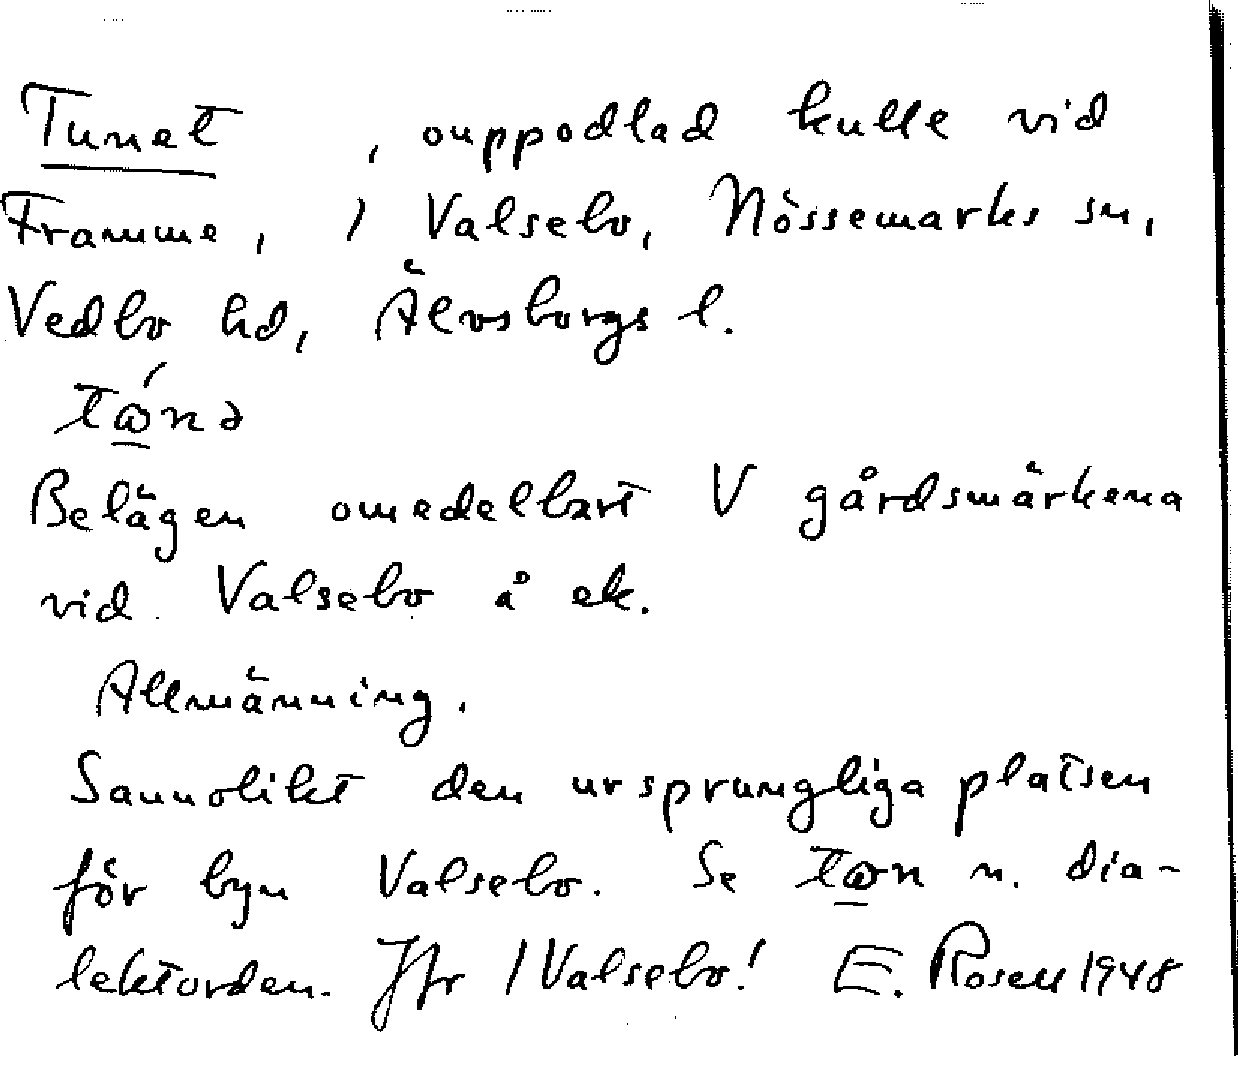 Tunet , ouppodlad kulle vid
Framme, / Valsebo, Nössemarks sn,
Vedbo hd, Älvsborgs l.
Belägen omedelbart V gårdsmärkena
vid Valsebo å ek.
Allmänning.
Sannolikt den ursprungliga platsen
för byn Valsebo. Se n. dia-
lektorden. Jfr / Valsebo! E. Rosell 1948